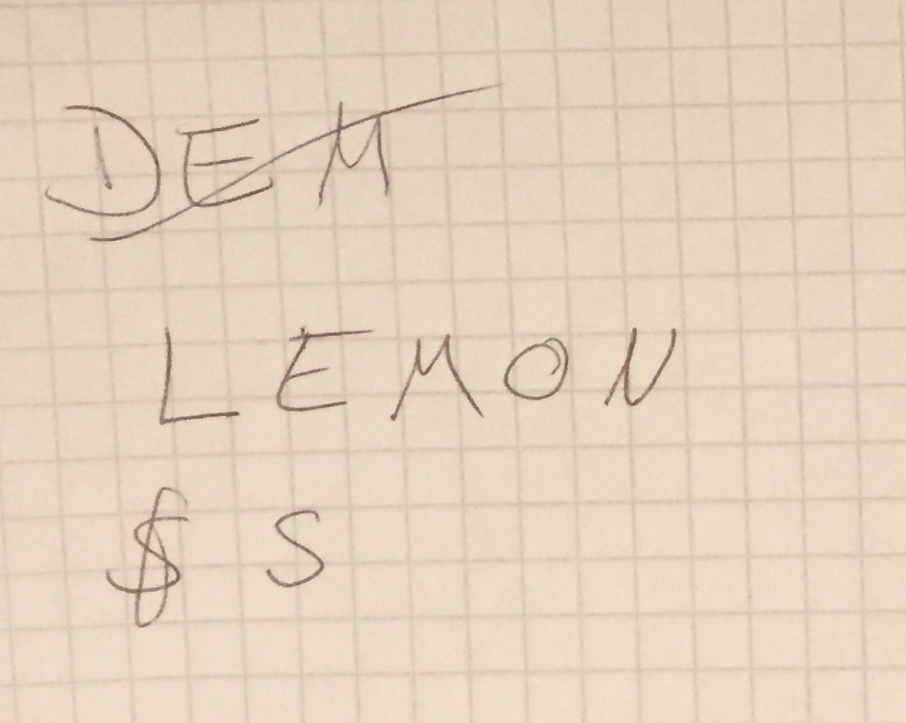 DEM
LEMON
$ S